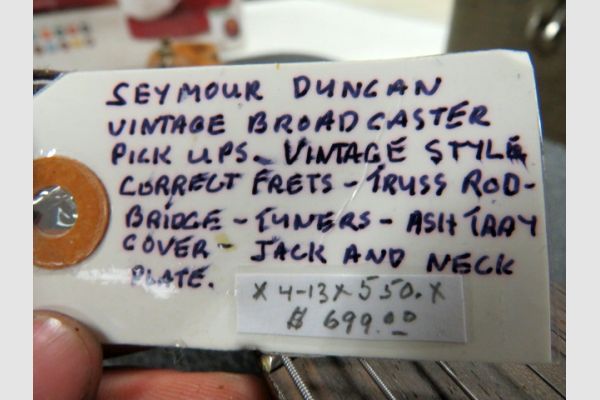 SEYMOUR DUNCAN
VINTAGE BROADCASTER
PICK UPS. VINTAGE STYLE
CORRECT FRETS - TRUSS ROD-
BRIDGE - TUNERS - ASH TRAY
COVER - JACK AND NECK
PLATE.
X 4-13X550.X
$ 699.00